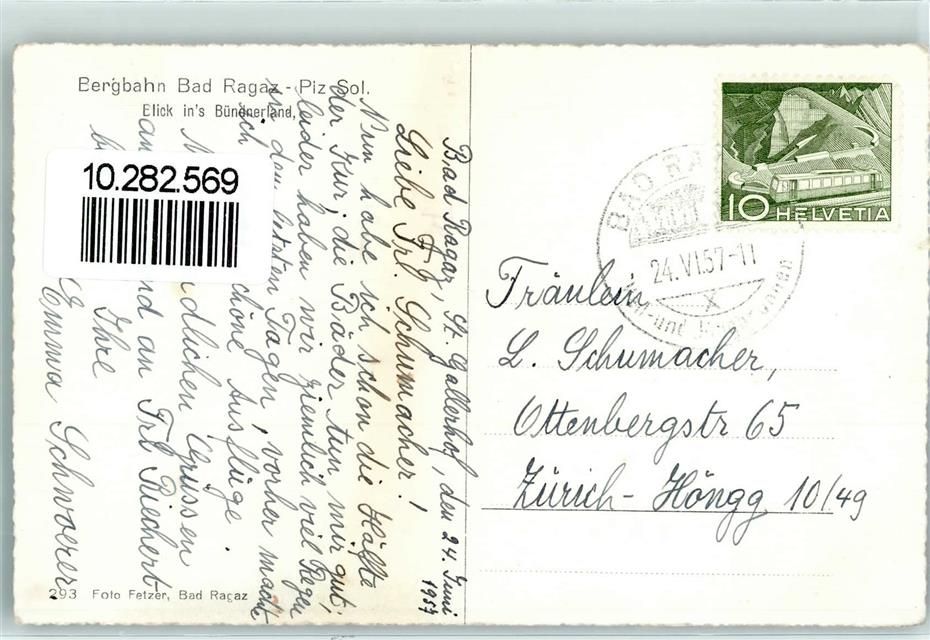 Bergbahn Bad Ragaz - Piz Sol.
Blick in's Bündnerland.
10.282.569
Bad Ragaz, St. Gallerhof, den 24. Juni
1957
Liebe Frl. Schumacher!
Nun habe ich schon die Hälfte
der Kur; die Bäder tun mir gut;
leider haben wir ziemlich viel Regen
in den letzten Tagen, vorher machte
ich schöne Ausflüge.
dlichen Grüssen
an nd an Frl. Riechert
Ihre
Emma Schwaerer
293 Foto Fetzer, Bad Ragaz
HELVETIA
10
BAD RA
24.VI.57-11
X
Fräulein
L. Schumacher,
Ottenbergstr 65
Zürich-Höngg 10/49